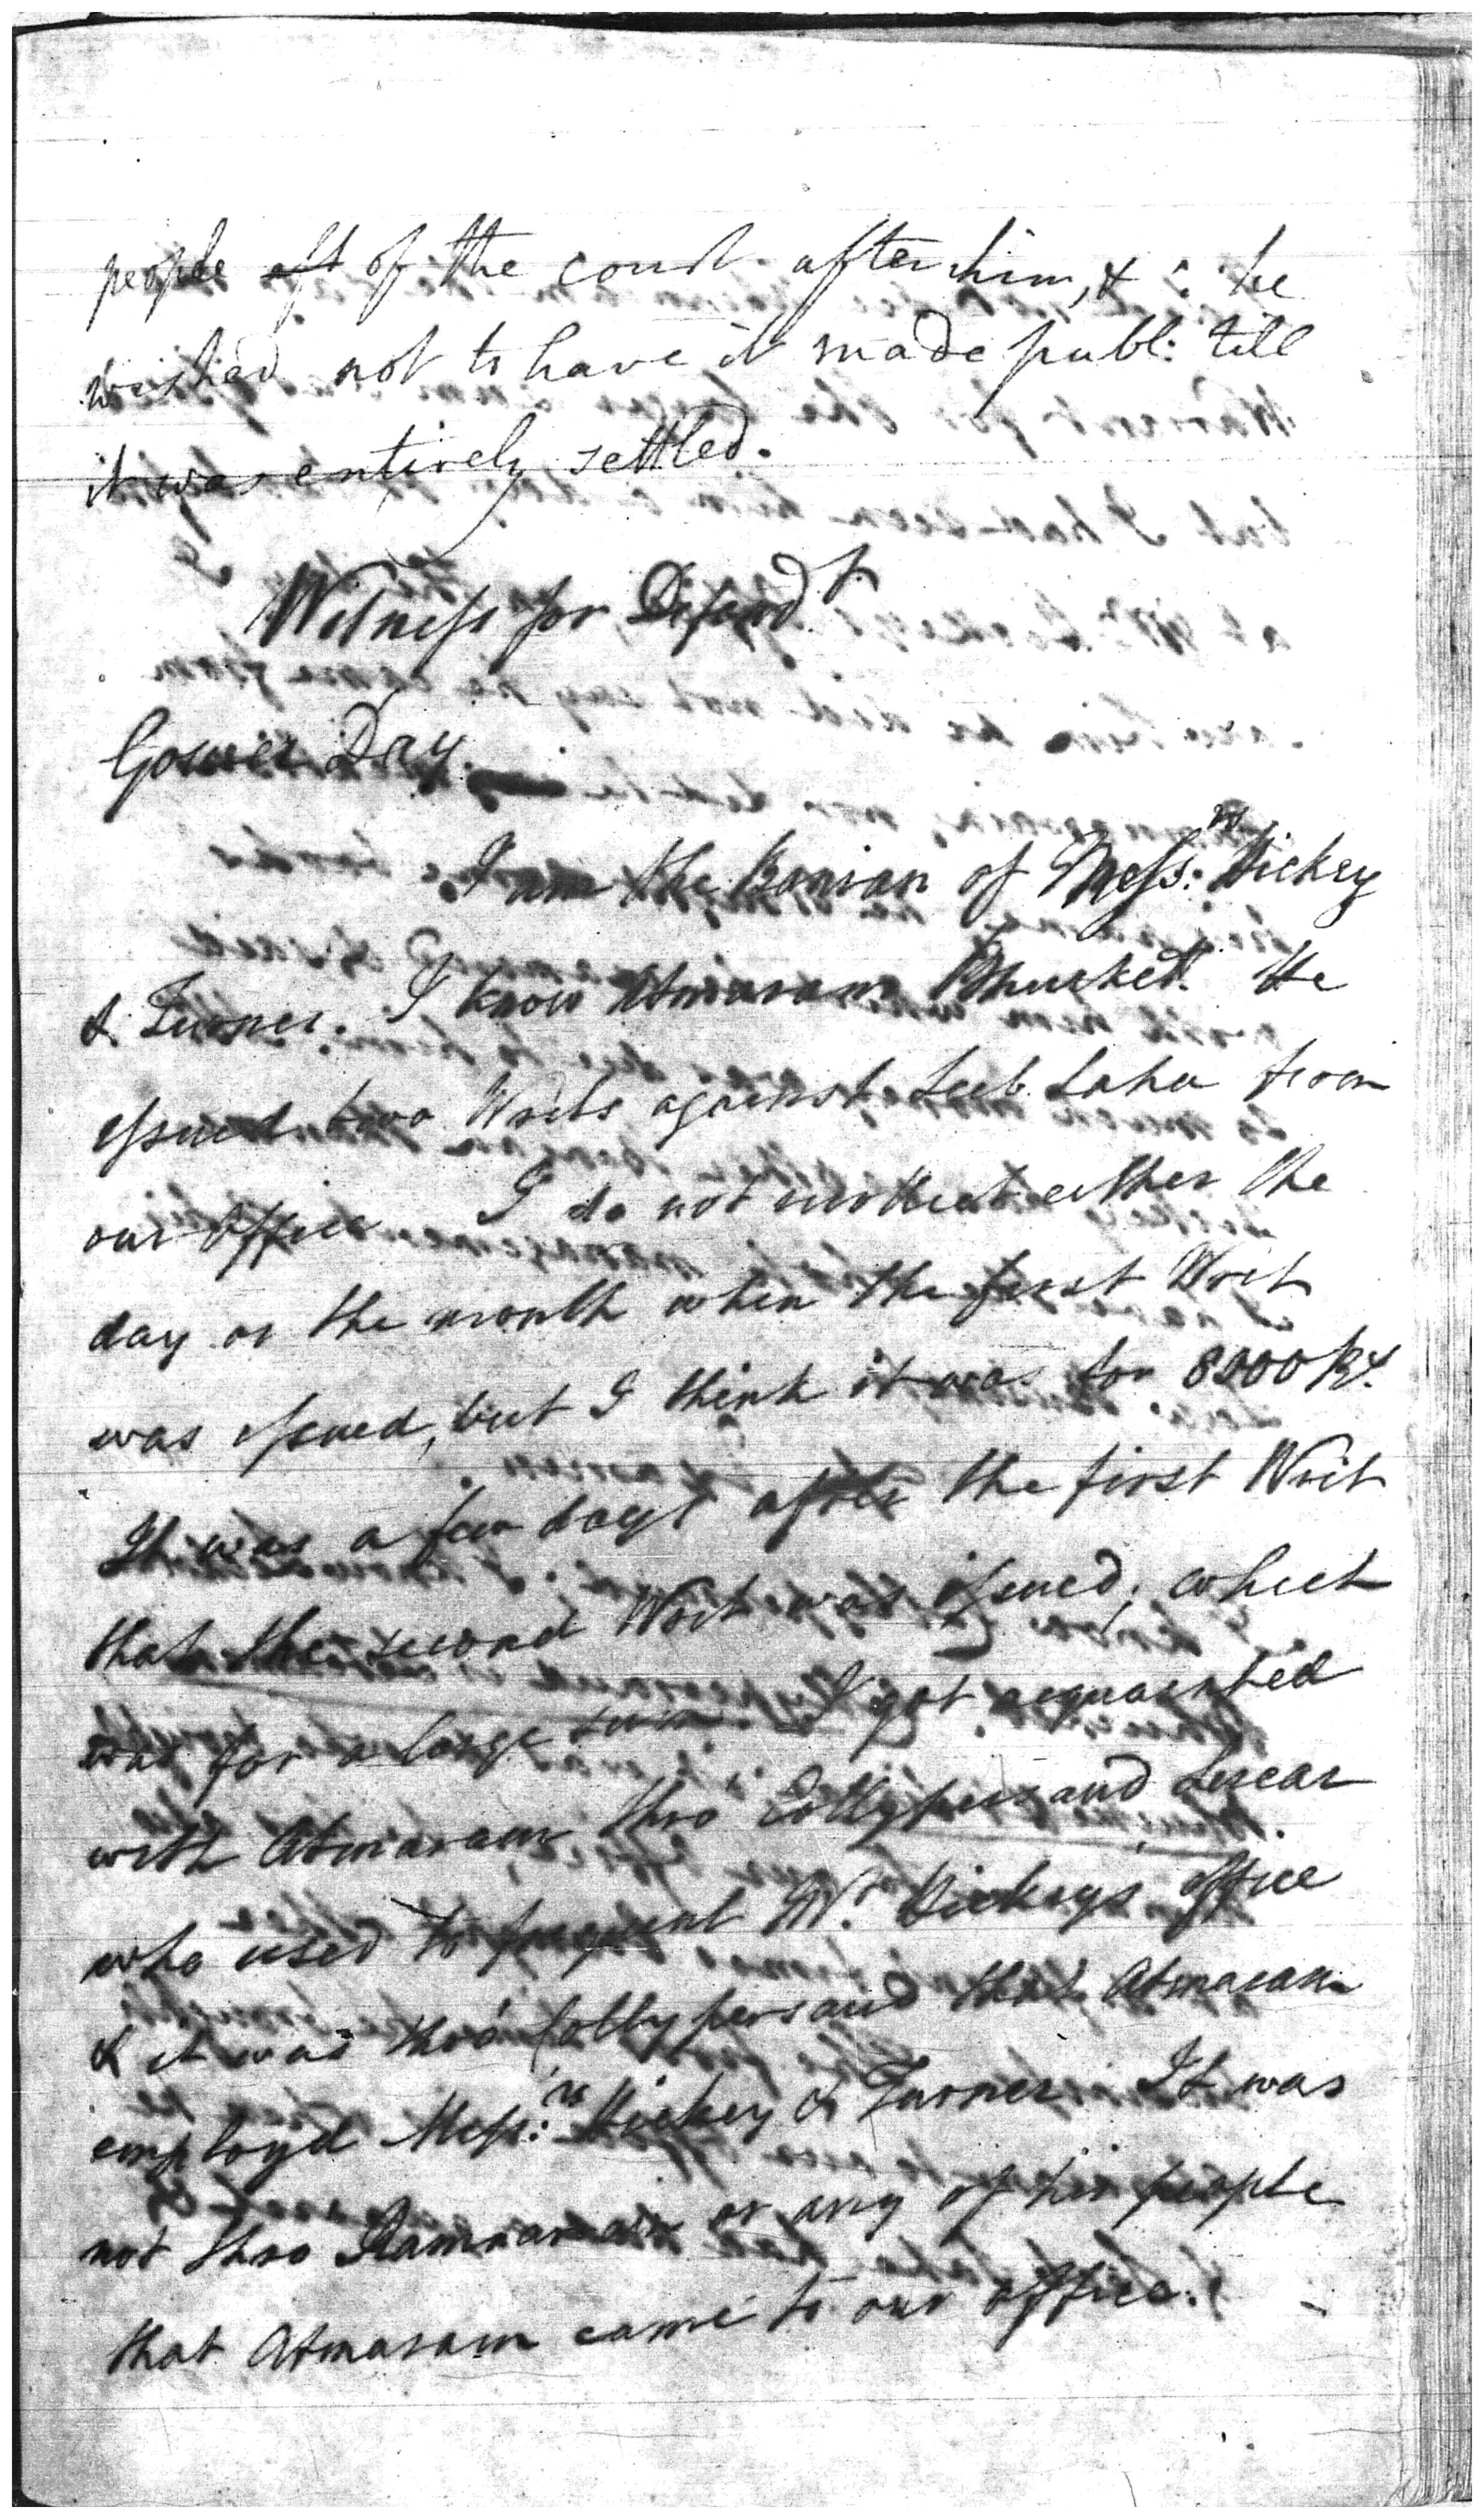 people aft of the court after him, & : he
wished not to have it made publ: till
it was entirely settled.
Witness for Defend.t
Gosner Dey.
I am the Banian of Mess:rs Hickey
& Turner. I know Atmaram Bhucket. He
issued two Writs against Seeb Saha from
our Office I do not recollect either the
day or the month when the first Writ
was issued, but I think it was for 8000 Rs.
It was a few days after the first Writ
that the second Writ was issued, which
was for a large sum. I got acquainted
with Atmaram thro' Collypersaud Sircar
who used to frequent Mr. Hickeys office
& it was thro' Collypersaud that Atmaram
employd Mess:rs Hickey & Turner. It was
not thro Ramnarain or any of his people
that Atmaram came to our office.